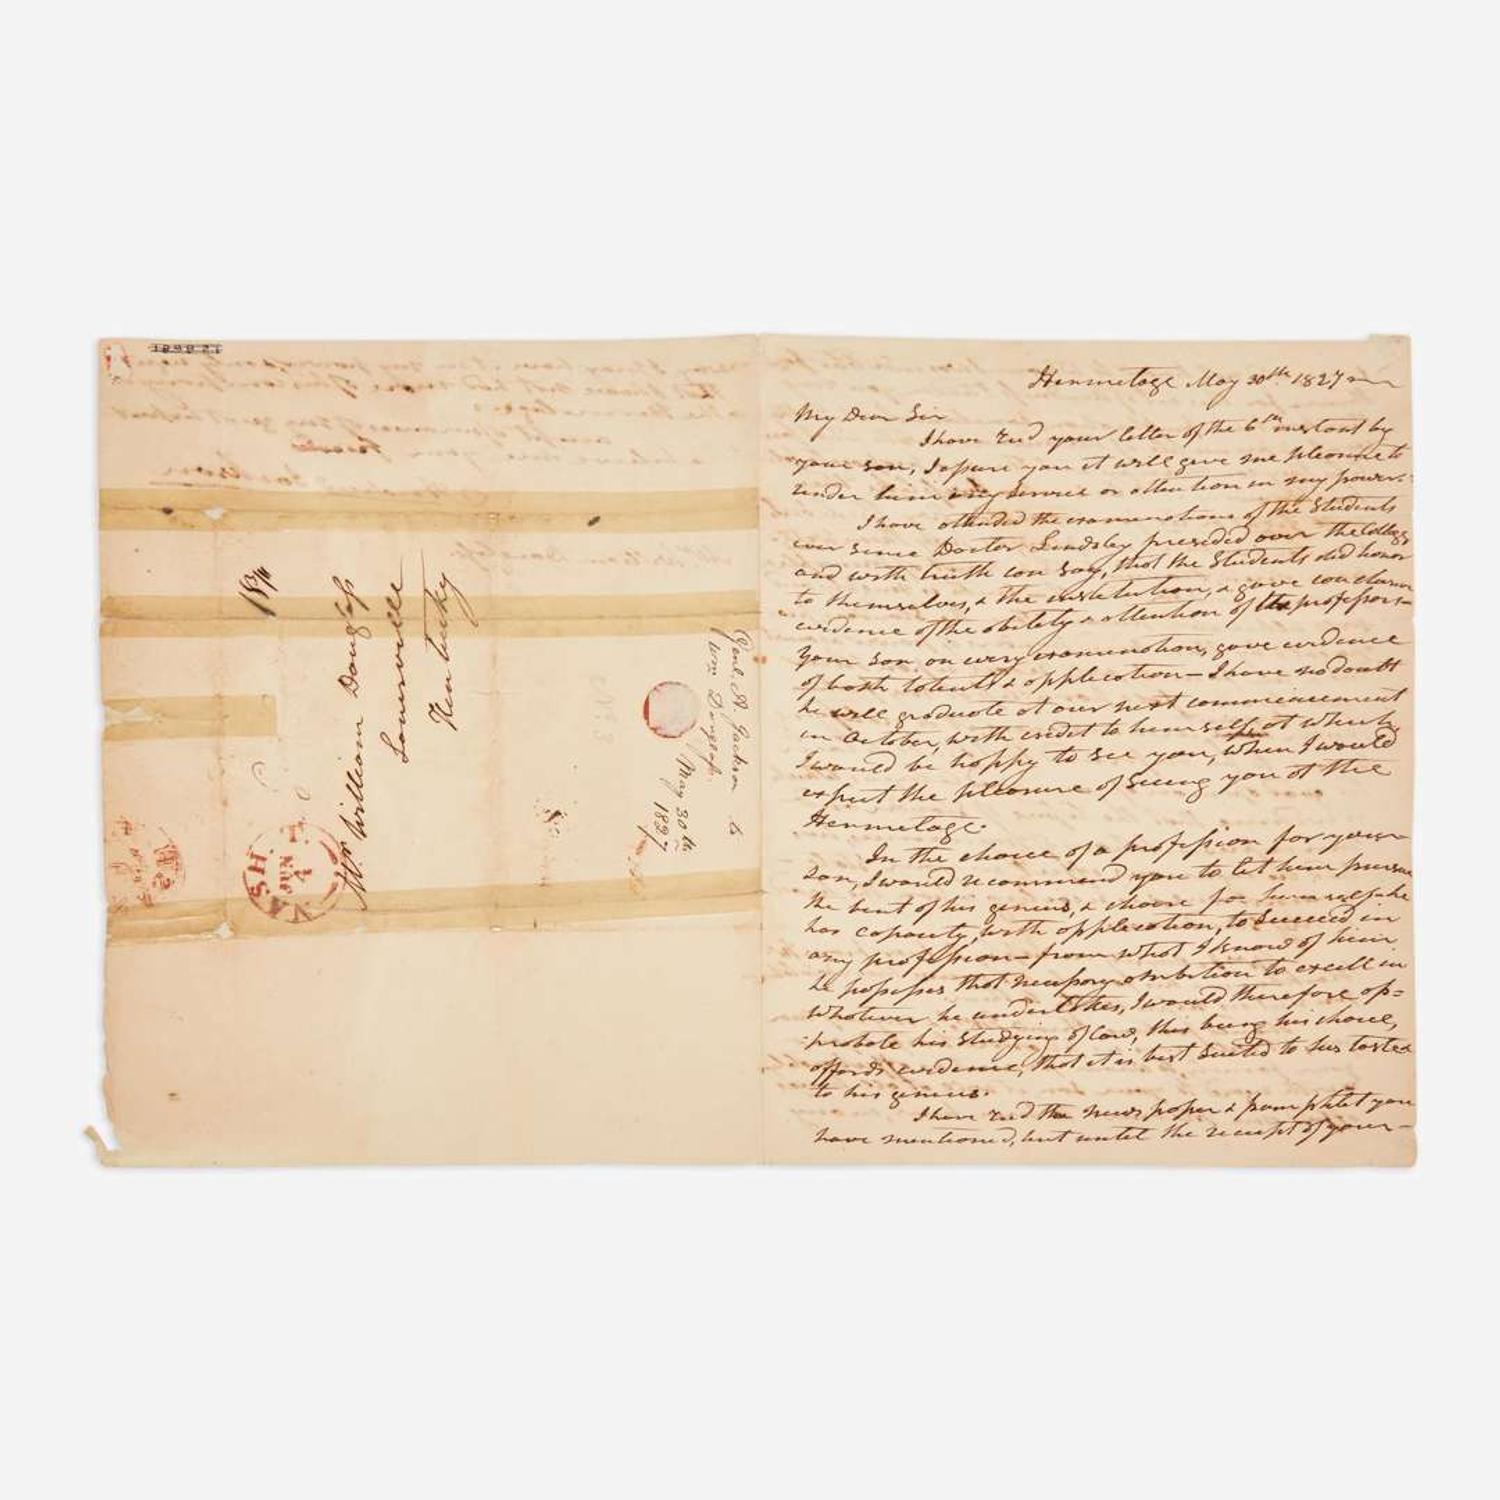 Mr William Douglass
Louisville
Kentucky
18¾
NASH. T.
JUN
Genl. A. Jackson to
Wm Douglass
May 30th
1827
Hermitage May 30th 1827
My Dear Sir
I have recd your letter of the 6th instant by
your son, I assure you it will give me pleasure to
render him any service or attention in my power.
I have attended the examinations of the Students
ever since Doctor Lindsley presided over the College
and with truth can say, that the Students did honor
to themselves, & the institution, & gave conclusive
evidence of the ability & attention of the professors—
Your son on every examination, gave evidence
of both talents & application— I have no doubt
he will graduate at our next commencement
in October, with credit to himself, at which,
I would be happy to see you, when I would
expect the pleasure of seeing you at the
Hermitage.
In the choice of a profession for your
son, I would recommend you to let him pursue
the bent of his genius, & choose for himself, he
has capacity, with application, to succeed in
any profession— from what I know of him
he possesses that necessary ambition to excell in
whatever he undertakes, I would therefore ap=
probate his studying of law, this being his choice,
affords evidence, that it is best suited to his taste &
to his genius.
I have recd the news paper & pamphlet you
have mentioned, but until the receipt of your—